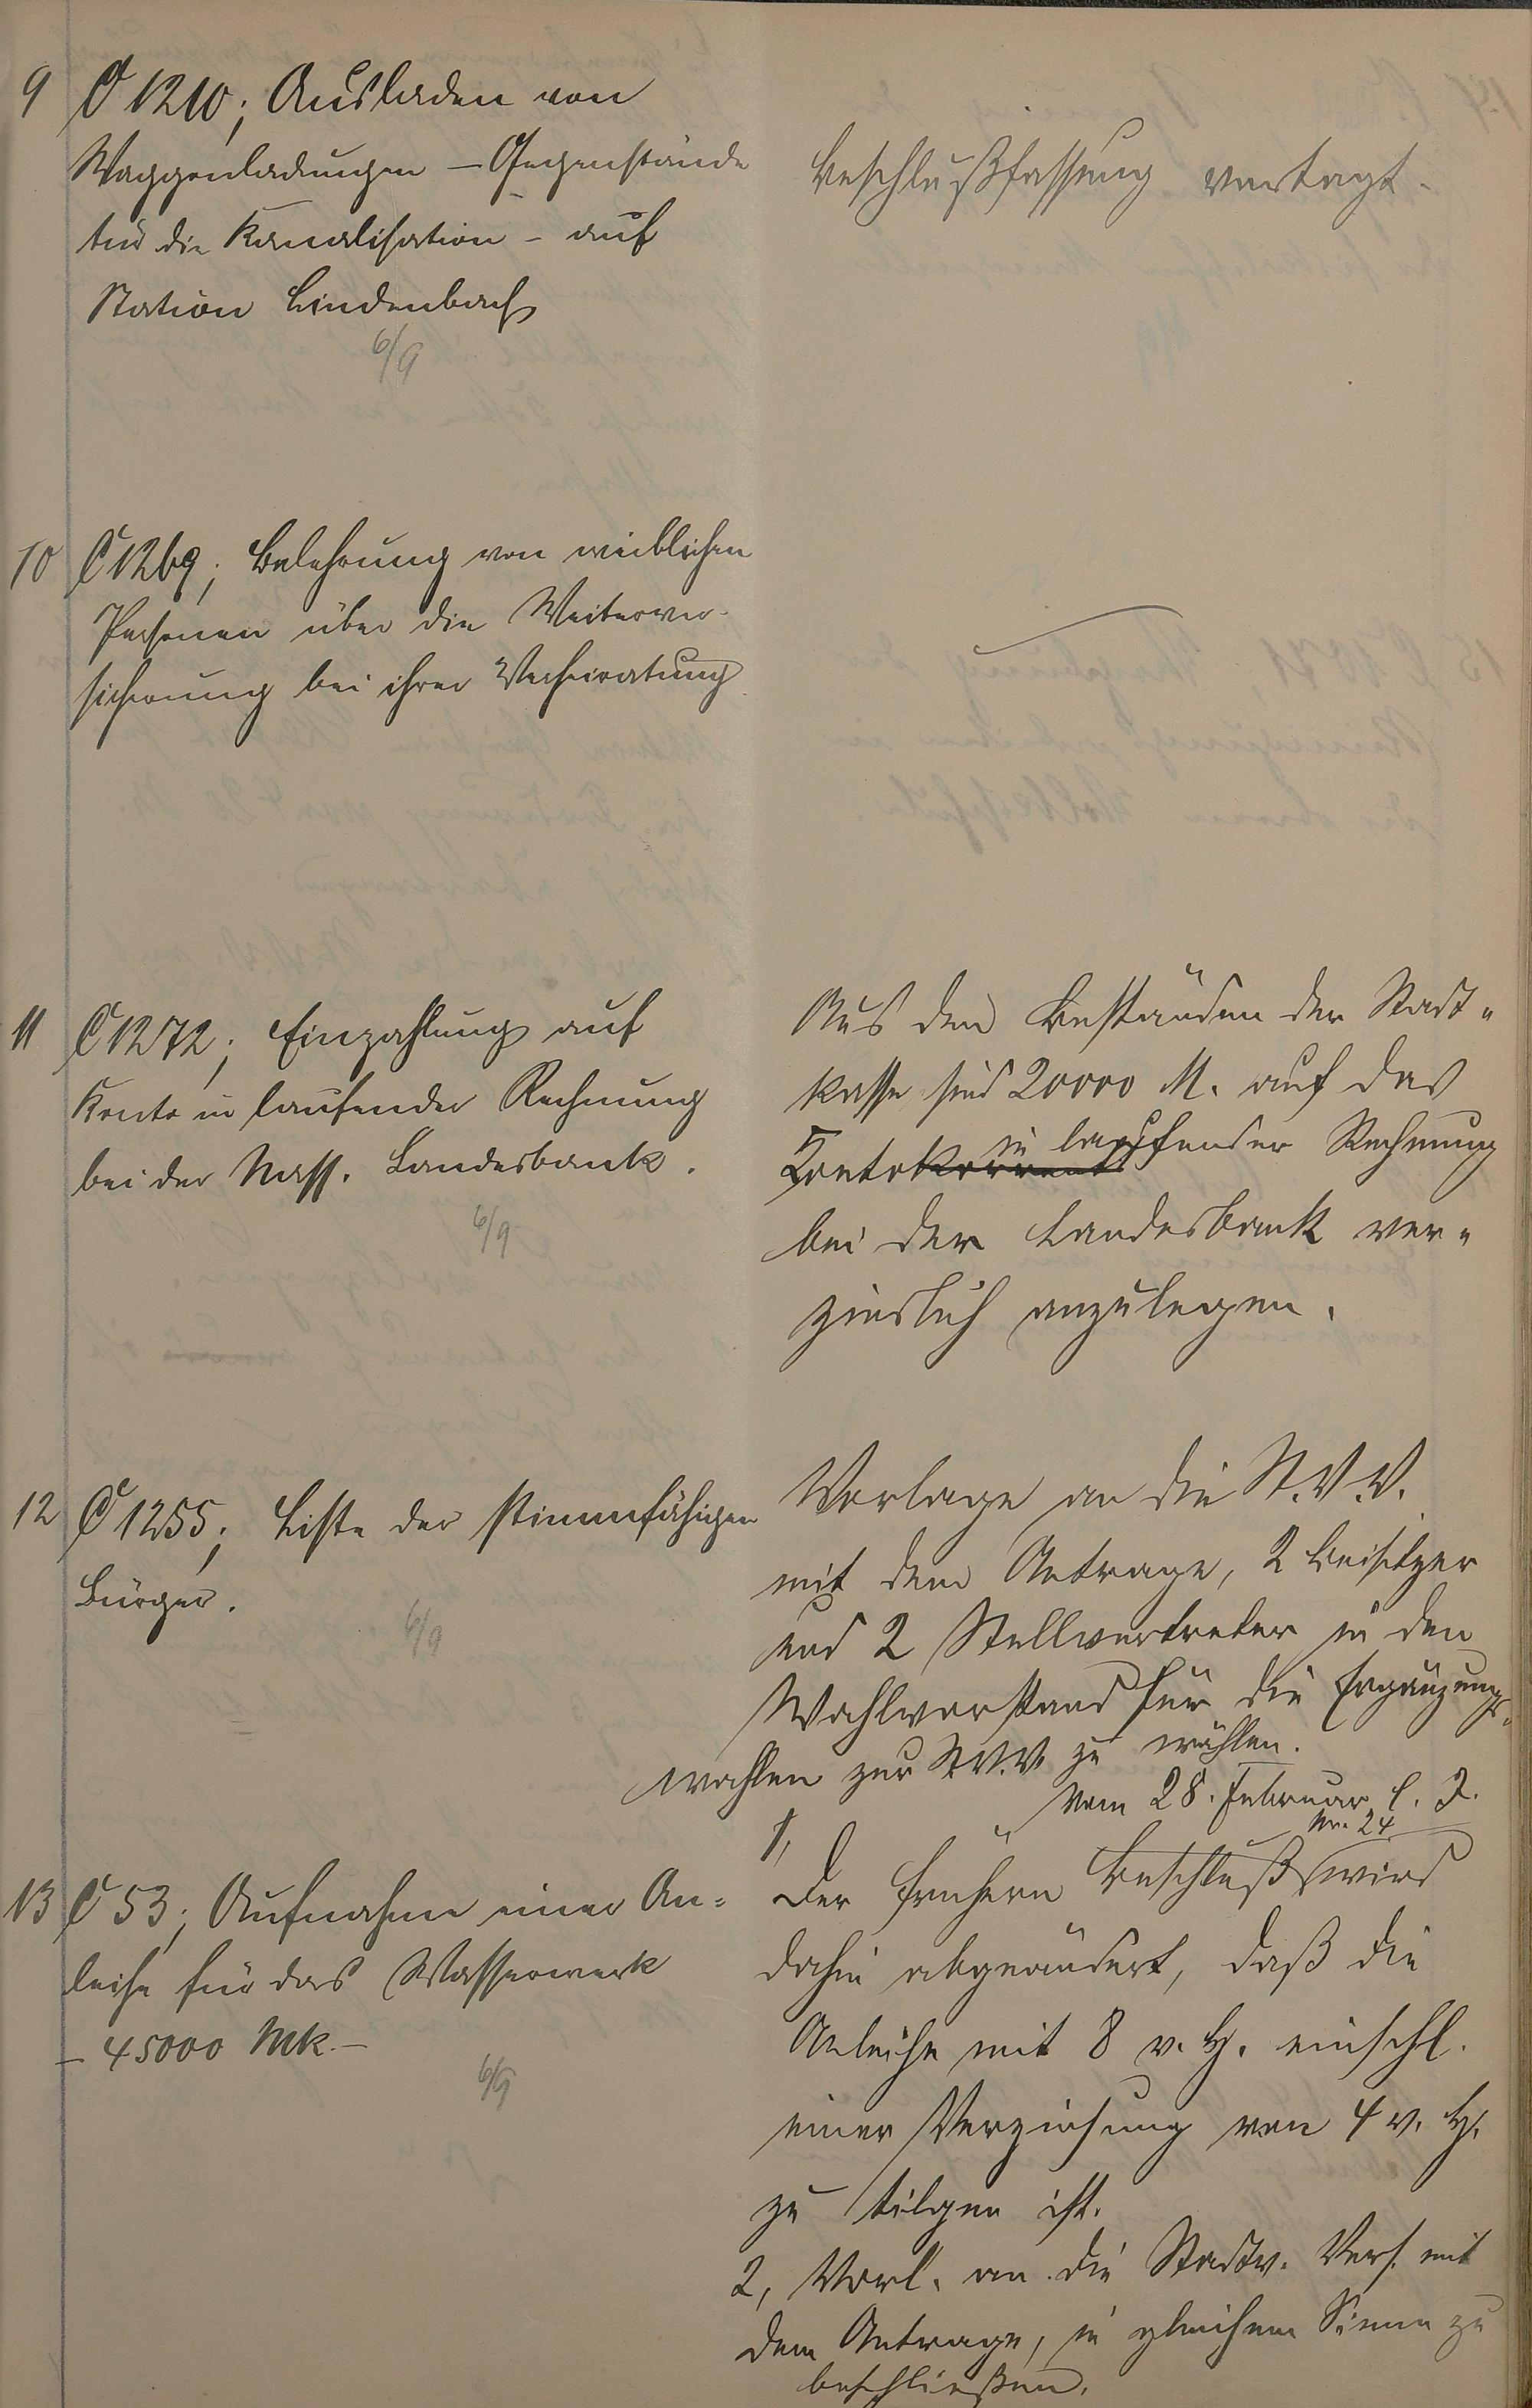 9 C 1210; Ausladen von
Waggonladungen - Gegenstände
für die Kanalisation - auf
Station Lindenbach
6/9
Beschlußfassung vertagt.
10 C 1269; Belehrung von weiblichen
Personen über die Weiterver-
sicherung bei ihrer Verheiratung
11 C 1272; Einzahlung auf
Konto in laufender Rechnung
bei der Nass. Landesbank.
6/9
Aus den Beständen der Stadt-
kasse sind 20000 M. auf das
Kontokorrent in laufender Rechnung
bei der Landesbank ver-
zinslich anzulegen.
12 C 1255; Liste der stimmfähigen
Bürger.
6/9
Vorlage an die St.V.V.
mit dem Antrage, 2 Beisitzer
und 2 Stellvertreter in den
Wahlvorstand für die Ergänzungs-
wahlen zur St.V.V. zu wählen.
13 C 53; Aufnahme einer An-
leihe für das Wasserwerk
- 45000 Mk. -
6/9
vom 28. Februar l. J.
Nr. 24
1, Der frühere Beschluß wird
dahin abgeändert, daß die
Anleihe mit 8 v. H. einschl.
einer Verzinsung von 4 v. H.
zu tilgen ist.
2, Vorl. an die Stadtv. Vers. mit
dem Antrage, in gleichem Sinne zu
beschließen.